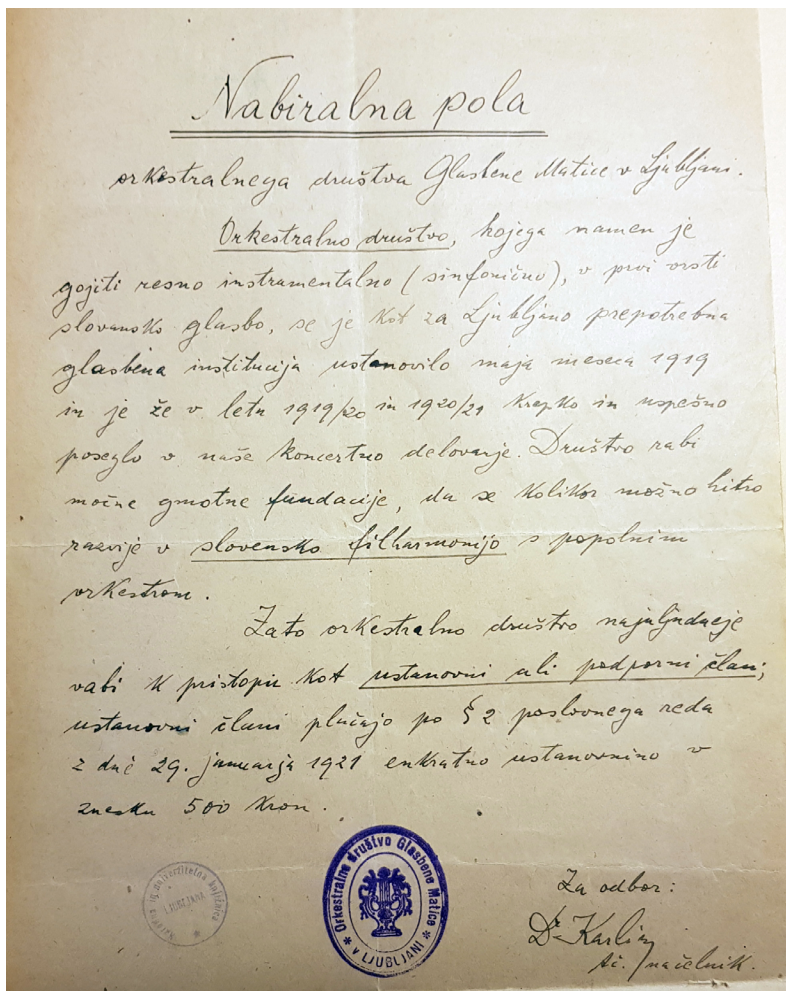 Nabiralna pola
orkestralnega društva Glasbene Matice v Ljubljani.
Orkestralno društvo, kojega namen je
gojiti resno instrumentalno (sinfonično), v prvi vrsti
slovansko glasbo, se je kot za Ljubljano prepotrebna
glasbena institucija ustanovilo maja meseca 1919
in je že v letu 1919/20 in 1920/21 krepko in uspešno
poseglo v naše koncertno delovanje. Društvo rabi
močne gmotne fundacije, da se kolikor možno hitro
razvije v slovensko filharmonijo s popolnim
orkestrom.
Zato orkestralno društvo najuljudneje
vabi k pristopu kot ustanovni ali podporni člani;
ustanovni člani plačajo po § 2 poslovnega reda
z dne 29. januarja 1921 enkratno ustanovnino v
znesku 500 kron.
Narodna in univerzitetna knjižnica
LJUBLJANA
Orkestralno društvo Glasbene Matice
V LJUBLJANI
Za odbor:
Dr Karlin
načelnik.